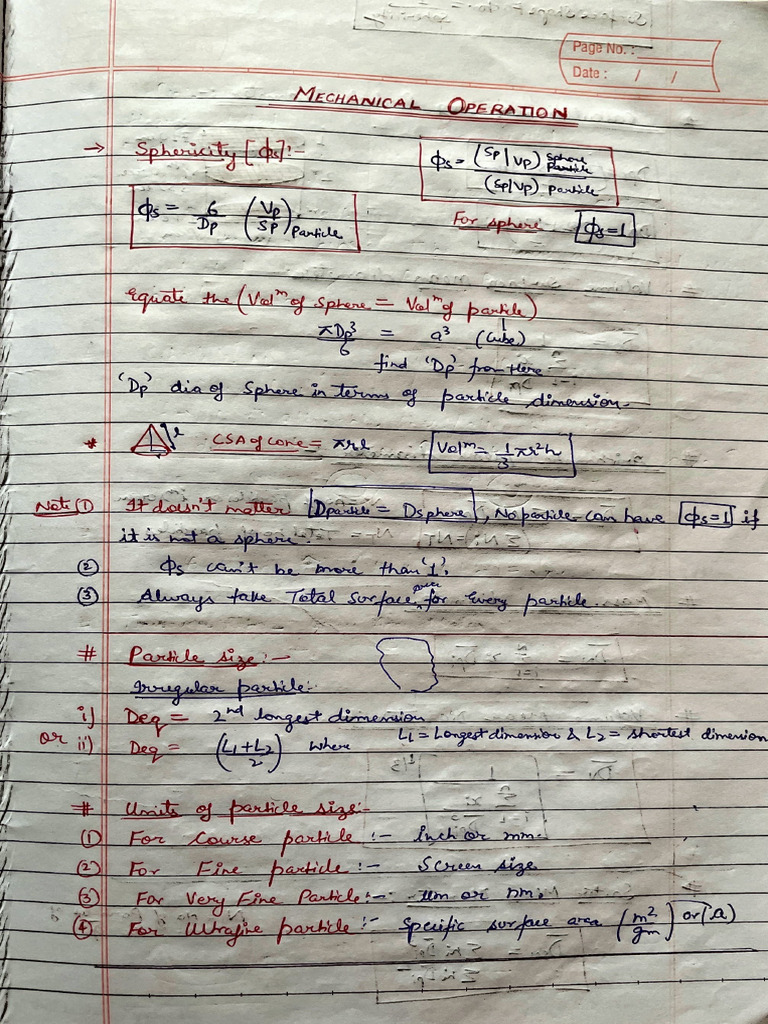 Page No. :
Date : / /
MECHANICAL OPERATION
→ Sphericity [ϕs]:-
ϕs = (Sp/Vp) sphere / (Sp/Vp) Particle
ϕs = 6/Dp (Vp/Sp) Particle
For sphere ϕs=1
Equate the (Volᵐ of sphere = Volᵐ of particle)
πDp³/6 = a³ (Cube)
find 'Dp' from Here
'Dp' dia of Sphere in terms of particle dimension.
* l CSA of cone = πrl Volᵐ = 1/3 πr²h
Note ① It doesn't matter Dparticle = Dsphere, No particle can have ϕs=1 if
it is not a sphere.
② ϕs can't be more than '1'.
③ Always take Total surface area for every particle.
# Particle size:-
Irregular particle:-
i) Deq = 2nd longest dimension
or ii) Deq = (L1+L2/2) where L1 = Longest dimension & L2 = shortest dimension
# Units of particle size:-
① For Course particle :- Inch or mm.
② For Fine particle :- Screen size
③ For Very Fine Particle:- um or nm.
④ For Ultrafine particle :- Specific surface area (m²/gm) or